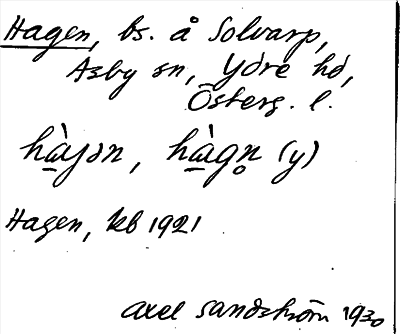 Hagen, bs. å Solvarp,
Asby sn, Ydre hd,
Österg. l.
hàɣən, hàgn̥ (y)
Hagen, kb 1921
Axel Sandström 1930